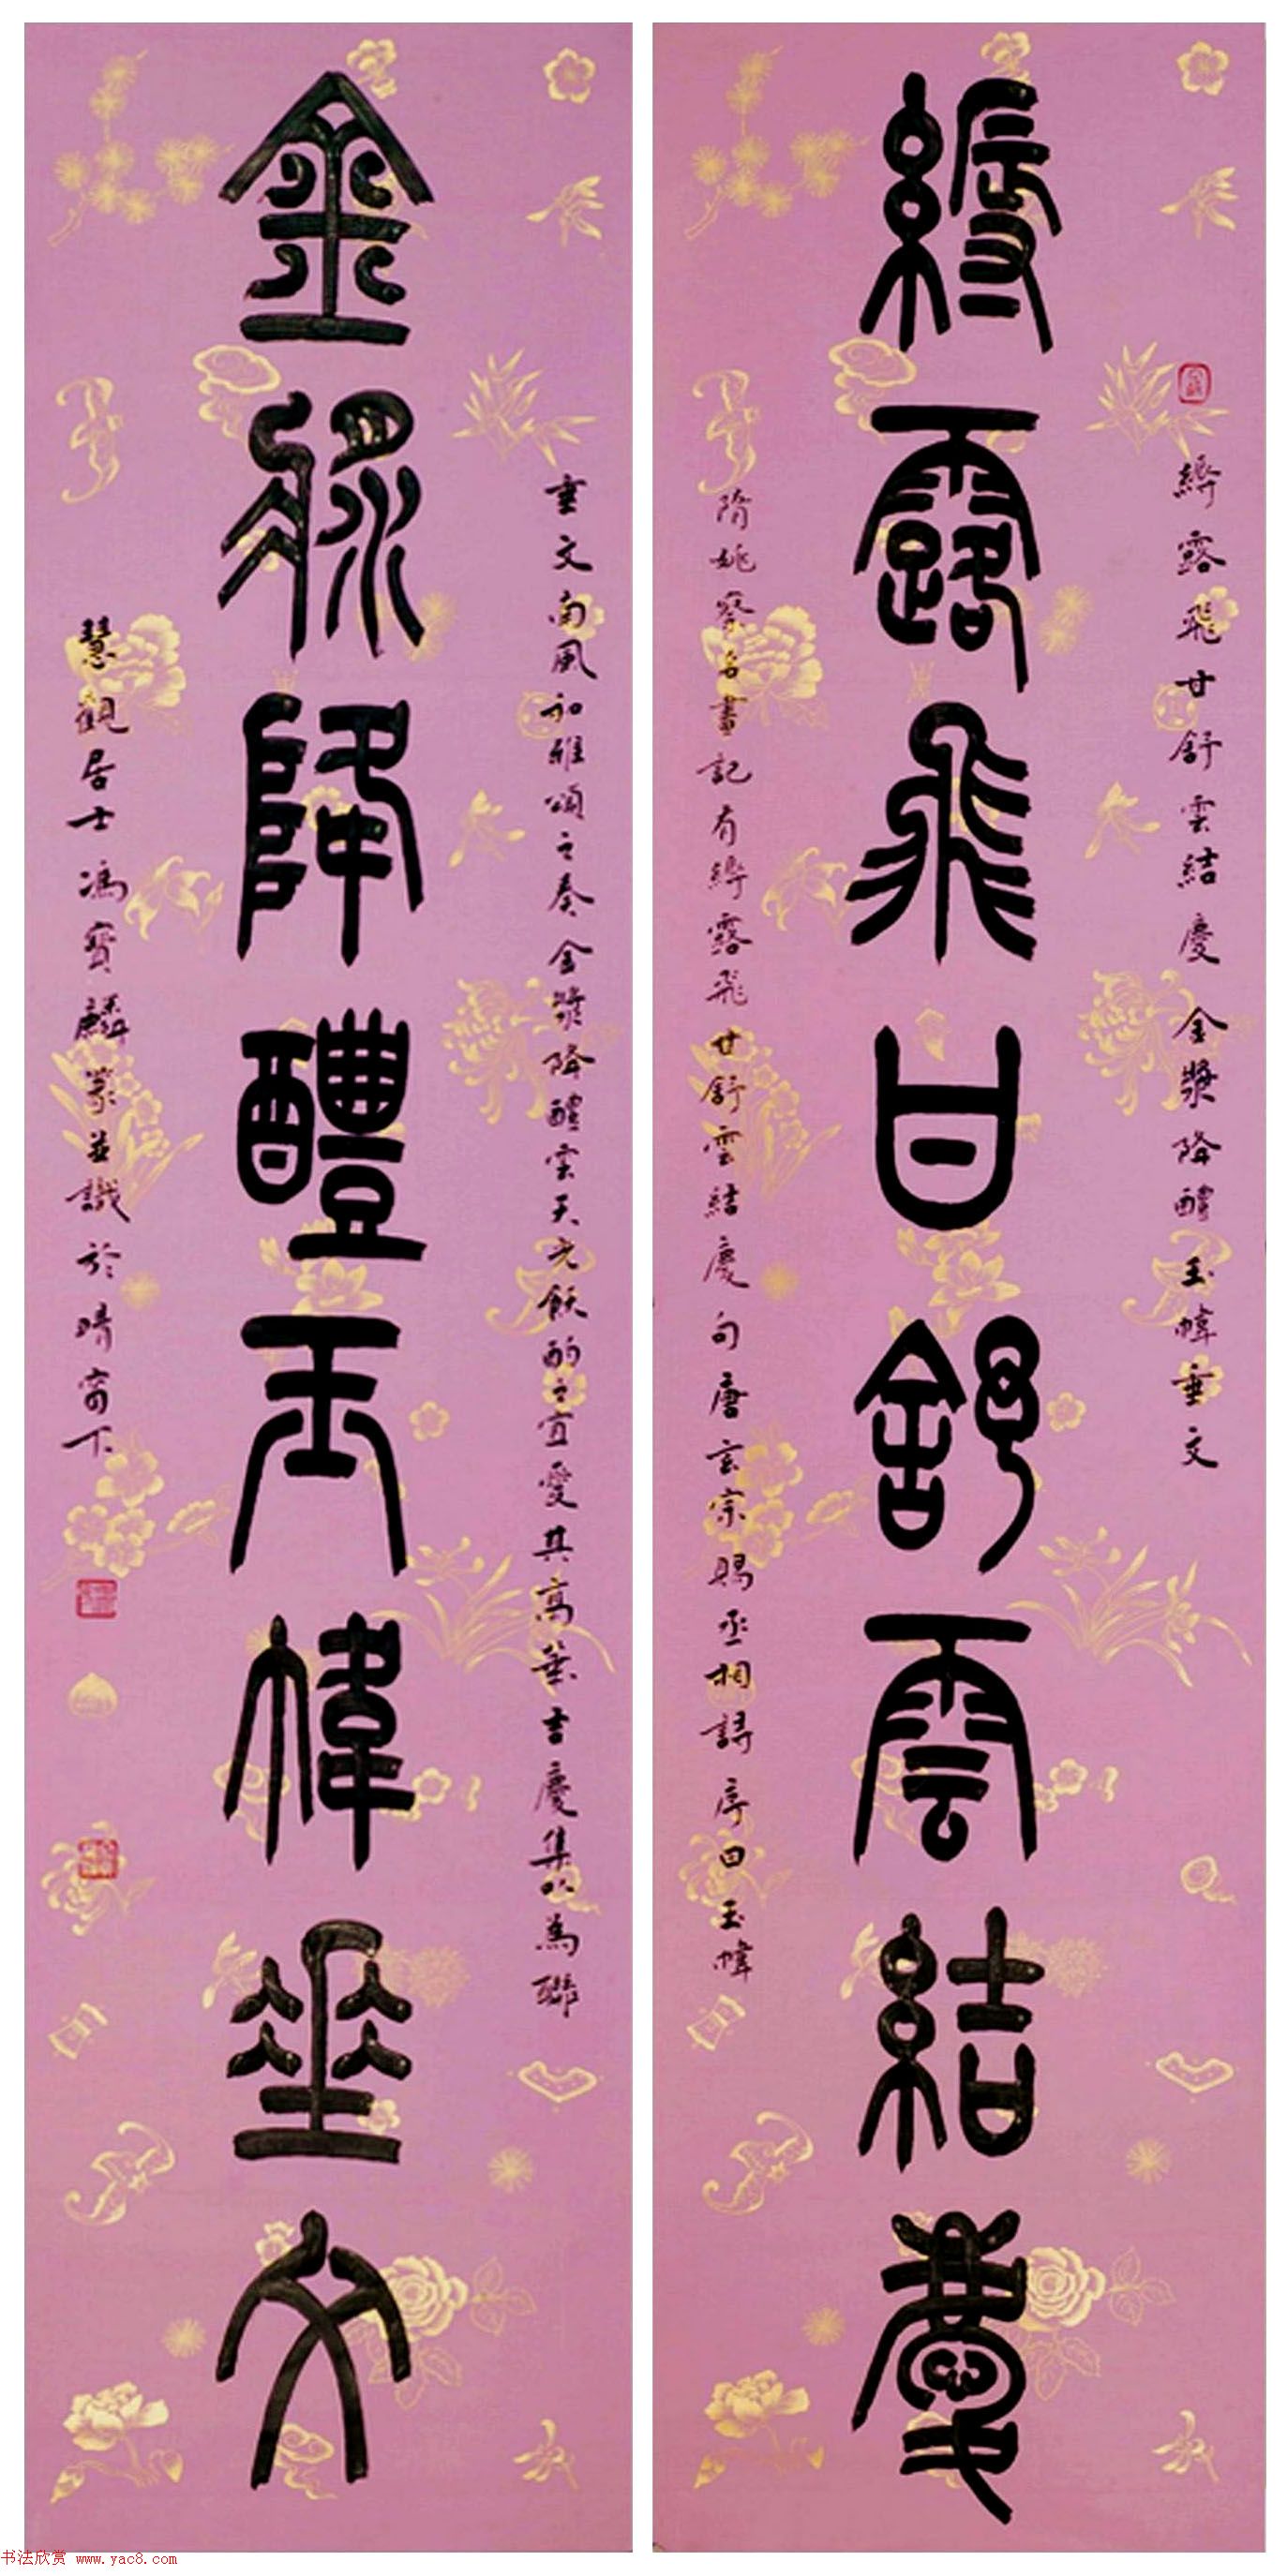 縟露飛甘舒雲結慶 金漿降醴玉幃垂文
縟露飛甘舒雲結慶
隋姚察名畫記有縟露飛甘舒雲結慶句唐玄宗賜丞相詩序曰玉幃
垂文南風和雅頌之奏金漿降醴雲天光飫酌之宜愛其高華吉慶集以為聯
金漿降醴玉幃垂文
慧觀居士馮寶麟篆並識於晴窗下
书法欣赏 www.yac8.com